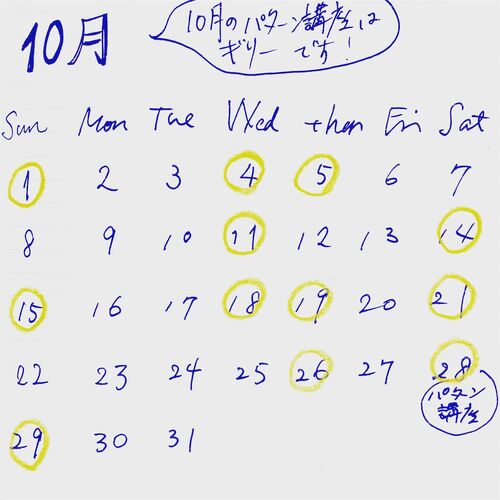 10月
10月のパタン講座は
ギリーです!
Sun Mon Tue Wed then Fri Sat
1 2 3 4 5 6 7
8 9 10 11 12 13 14
15 16 17 18 19 20 21
22 23 24 25 26 27 28
パタン
講座
29 30 31